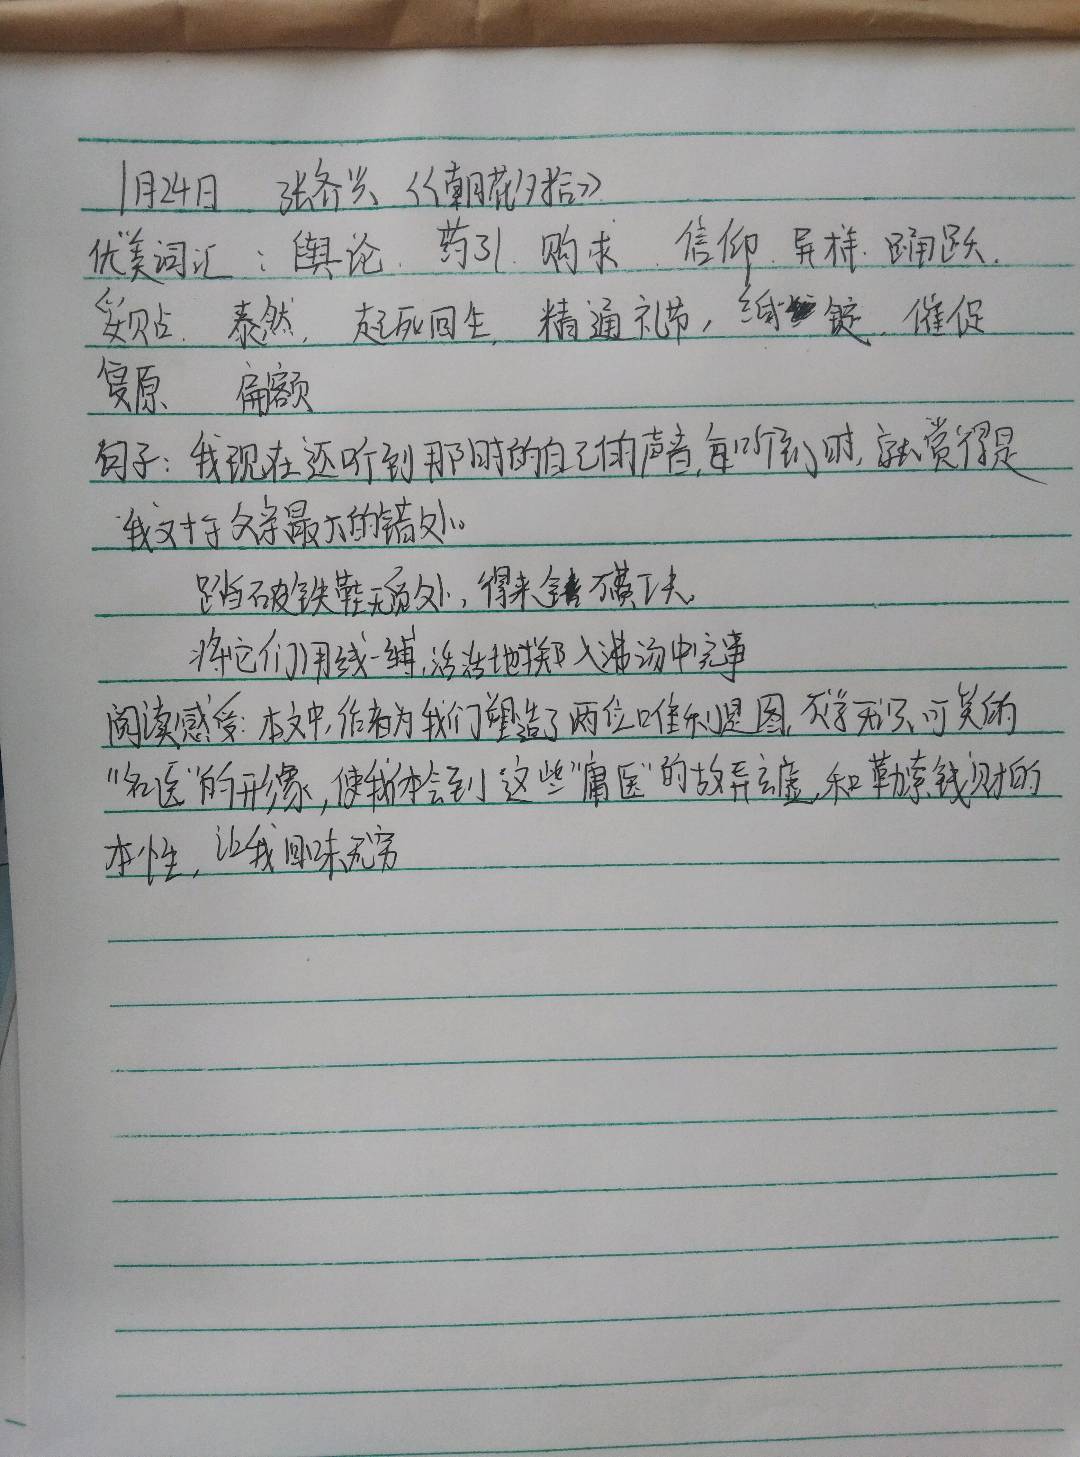 1月24日 张齐兴《朝花夕拾》
优美词汇：舆论. 药引. 购求. 信仰. 异样. 踊跃.
妥贴. 泰然. 起死回生. 精通礼节, 纸锭. 催促
复原 扁额
句子：我现在还听到那时的自己的声音,每听到时,就觉得是
我对于父亲最大的错处。
踏破铁鞋无觅处,得来全不费工夫。
将它们用线一缚,活活地掷入沸汤中完事
阅读感受：本文中,作者为我们塑造了两位唯利是图,不学无识、可笑的
“名医”的形象,使我体会到这些“庸医”的故弄玄虚,和勒索钱财的
本性,让我回味无穷